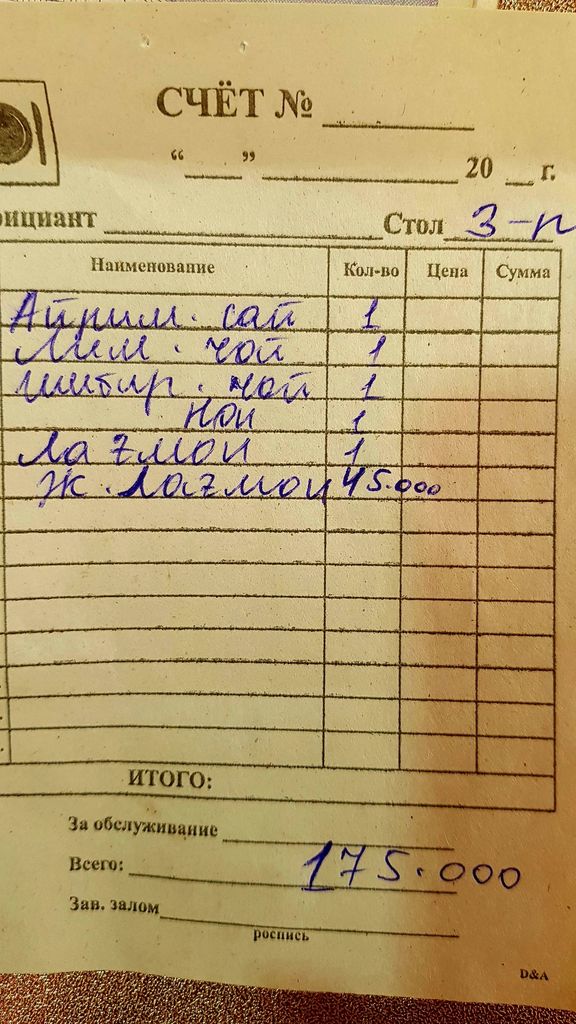 СЧЁТ № ______
“___” ____________ 20 __ г.
ициант ____________ Стол 3-п
Наименование Кол-во Цена Сумма
сай 1
Лим. чой 1
чой 1
Нон 1
Лагмон 1
Ж. Лагмон 45.000
ИТОГО:
За обслуживание
Всего: 175.000
Зав. залом
роспись
D&A